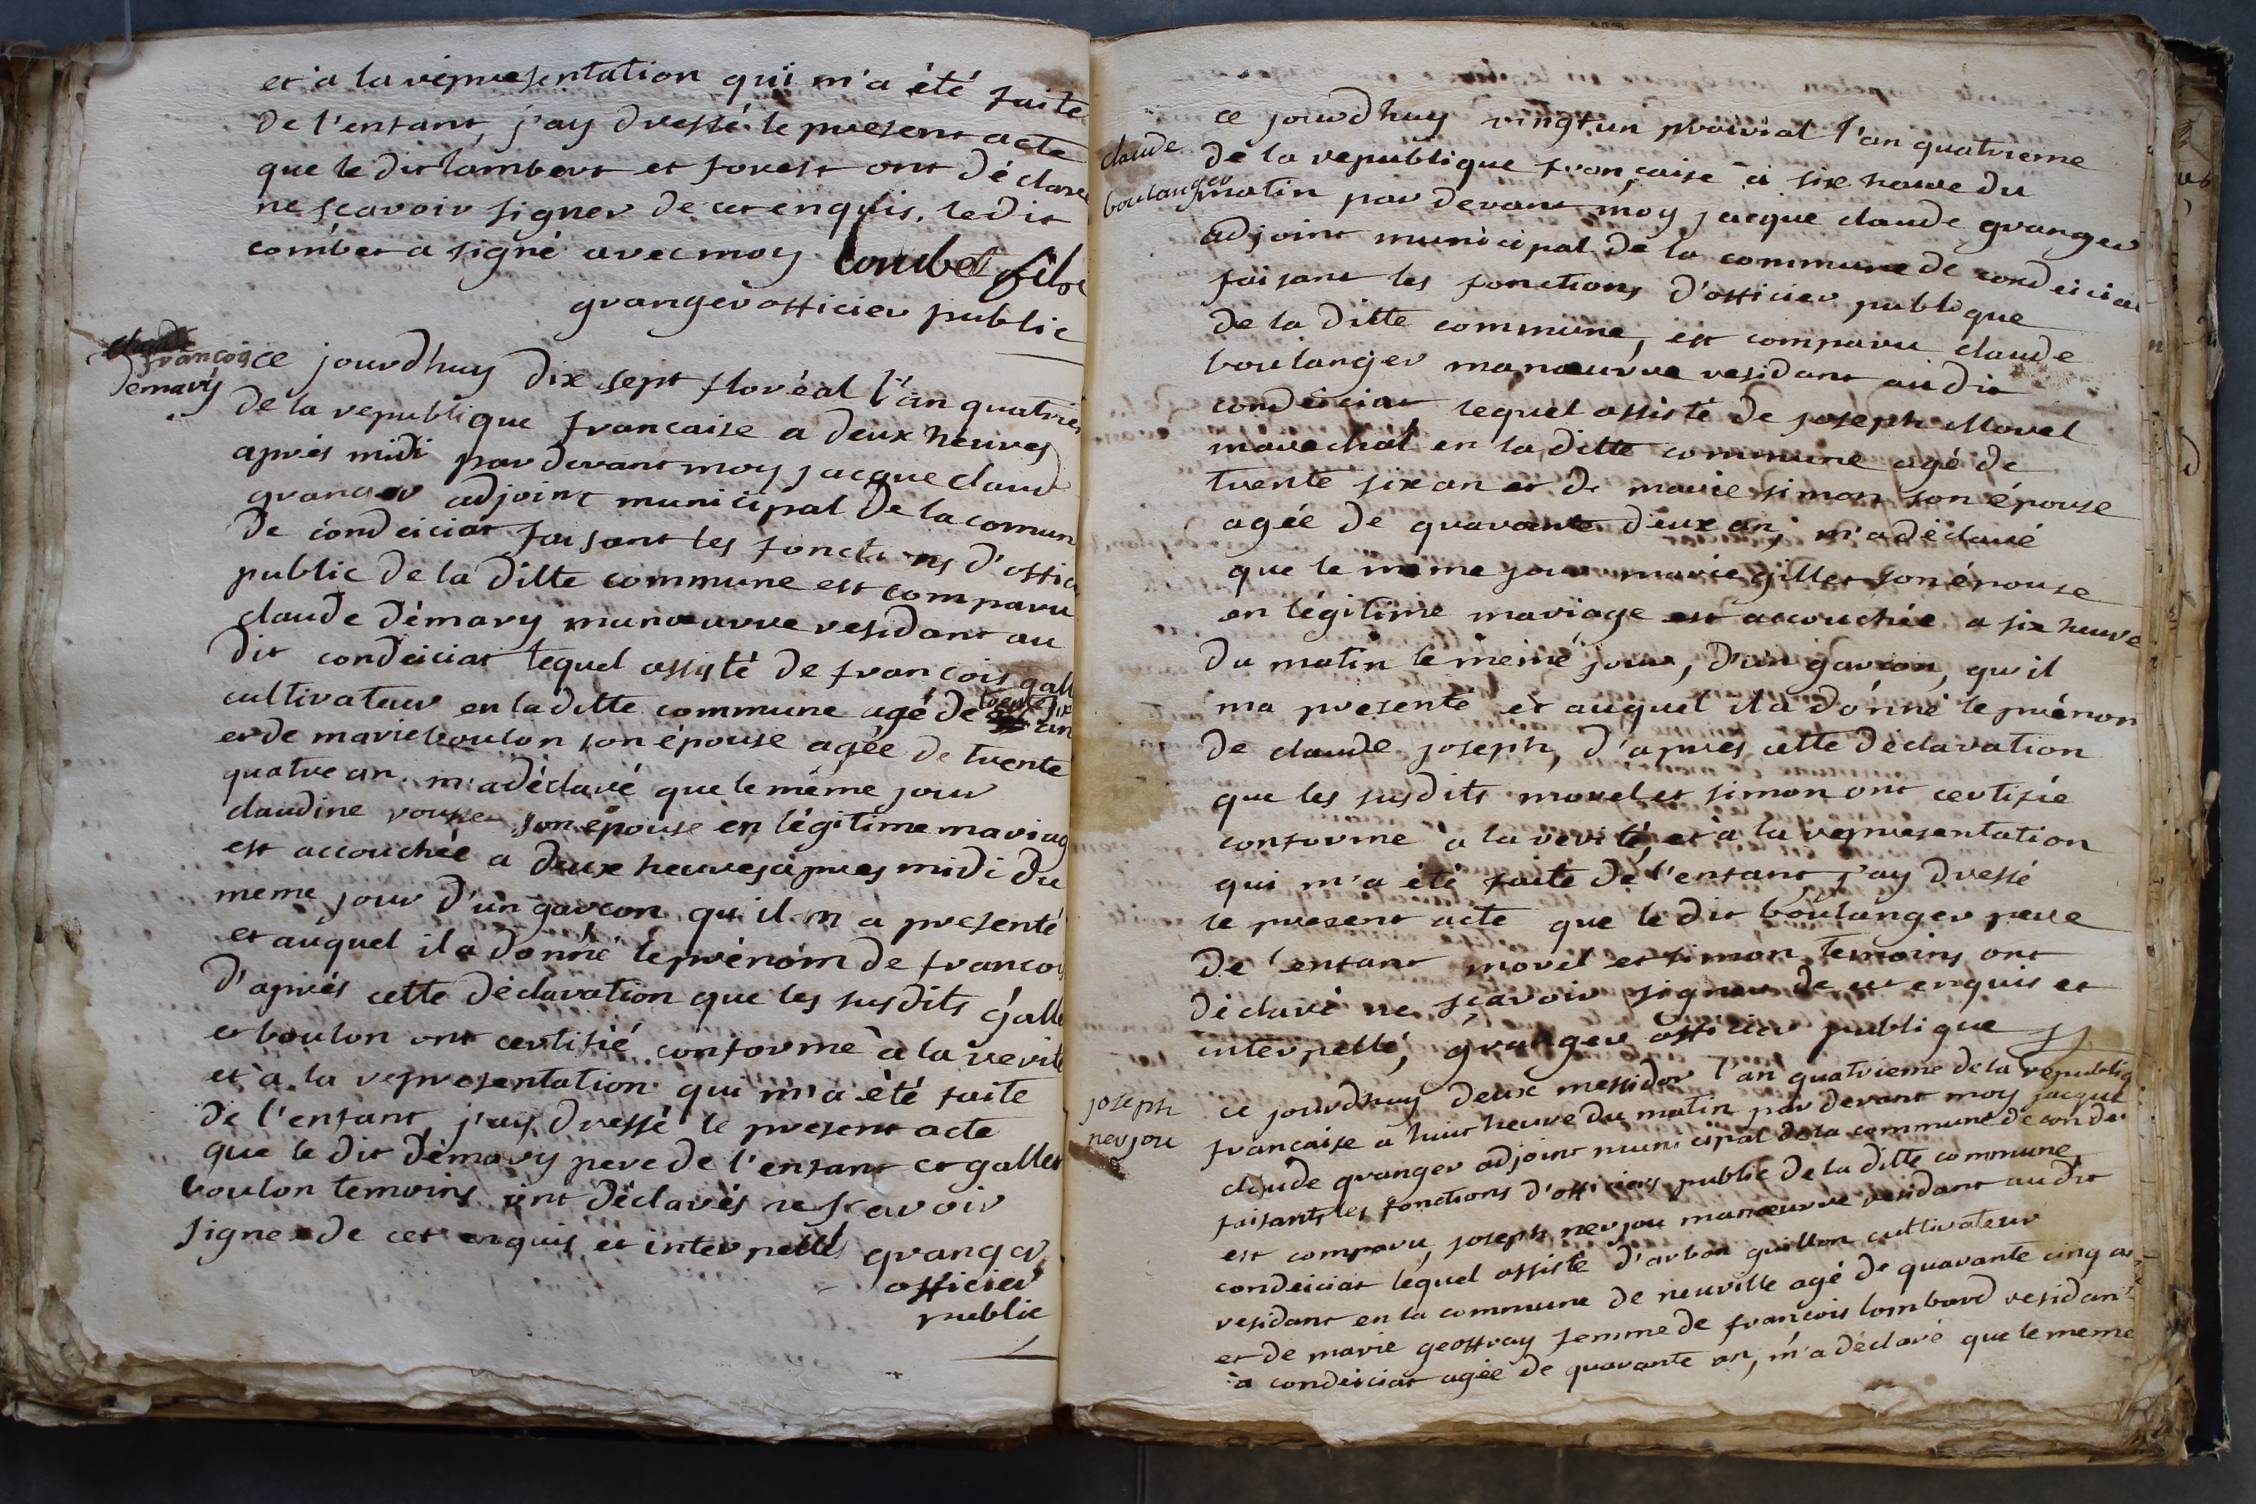 et a la representation qui m'a été faite
de l'enfant, j'ay dressé le present acte
que le dit lambert et forest ont déclaré
ne sçavoir signer de cet enquis. le dit
combet a signé avec moy combet fils
granger officier public
françois
démary
ce jourdhuy dix sept floréal l'an quatrie
de la republique francaise a deux heures
aprés midi par devant moy jacque claud
granger adjoint municipal de la comun
de condeiciat faisant les fonctions d'offici
public de la ditte commune est comparu
claude démary manœuvre residant au
dit condeiciat lequel assisté de françois gall
cultivateur en la ditte commune agé de trente six an
et de marie boulon son épouse agée de trente
quatre an. m'a déclaré que le même jour
claudine rousset son épouse en légitime mariag
est accouchée a deux heures apres midi du
meme jour d'un garçon qu'il m'a presenté
et auquel il a donné le prénom de françois
d'aprés cette déclaration que les susdits galle
et boulon ont certifié conforme à la verité
et a la representation qui m'a été faite
de l'enfant, j'ay dressé le present acte
que le dit démary pere de l'enfant et gallet
boulon temoins ont déclarés ne scavoir
signer de cet enquis et interpellés granger
officier
public
claude
boulanger
ce jourdhuy vingt un prairial l'an quatrieme
de la republique françaisе à six heure du
matin par devant moy jacque claude granger
adjoint municipal de la commune de condeiciat
faisant les fonctions d'officier publique
de la ditte commune, est comparu claude
boulanger manœuvre residant au dit
condeiciat lequel assisté de joseph Morel
marechal en la ditte commune agé de
trente six an et de marie simon son épouse
agée de quarante deux an, m'a déclaré
que le meme jour marie gillet son épouse
en légitime mariage est accouchée a six heure
du matin le meme jour, d'un garcon, qu'il
ma presenté et auquel il a donné le prénom
de claude joseph, d'apres cette déclaration
que les susdits morel et simon ont certifié
conforme à la verité et à la representation
qui m'a été faite de l'enfant, j'ay dressé
le present acte que le dit boulanger pere
de l'enfant morel et simon temoins ont
déclaré ne sçavoir signer de cet enquis et
interpellé, granger officier publique
joseph
nerjou
ce jourdhuy deux messidor l'an quatrieme de la republiq
francaise a huit heure du matin par devant moy jacque
claude granger adjoint municipal de la commune de condei
faisants les fonctions d'officier public de la ditte commune,
est comparu joseph nerjou manœuvre residant au dit
condeiciat lequel assisté d'arban guillon cultivateur
residant en la commune de neuville agé de quarante cinq an
et de marie geoffray femme de françois lombard residant
à condeiciat agée de quarante an, m'a déclaré que le meme